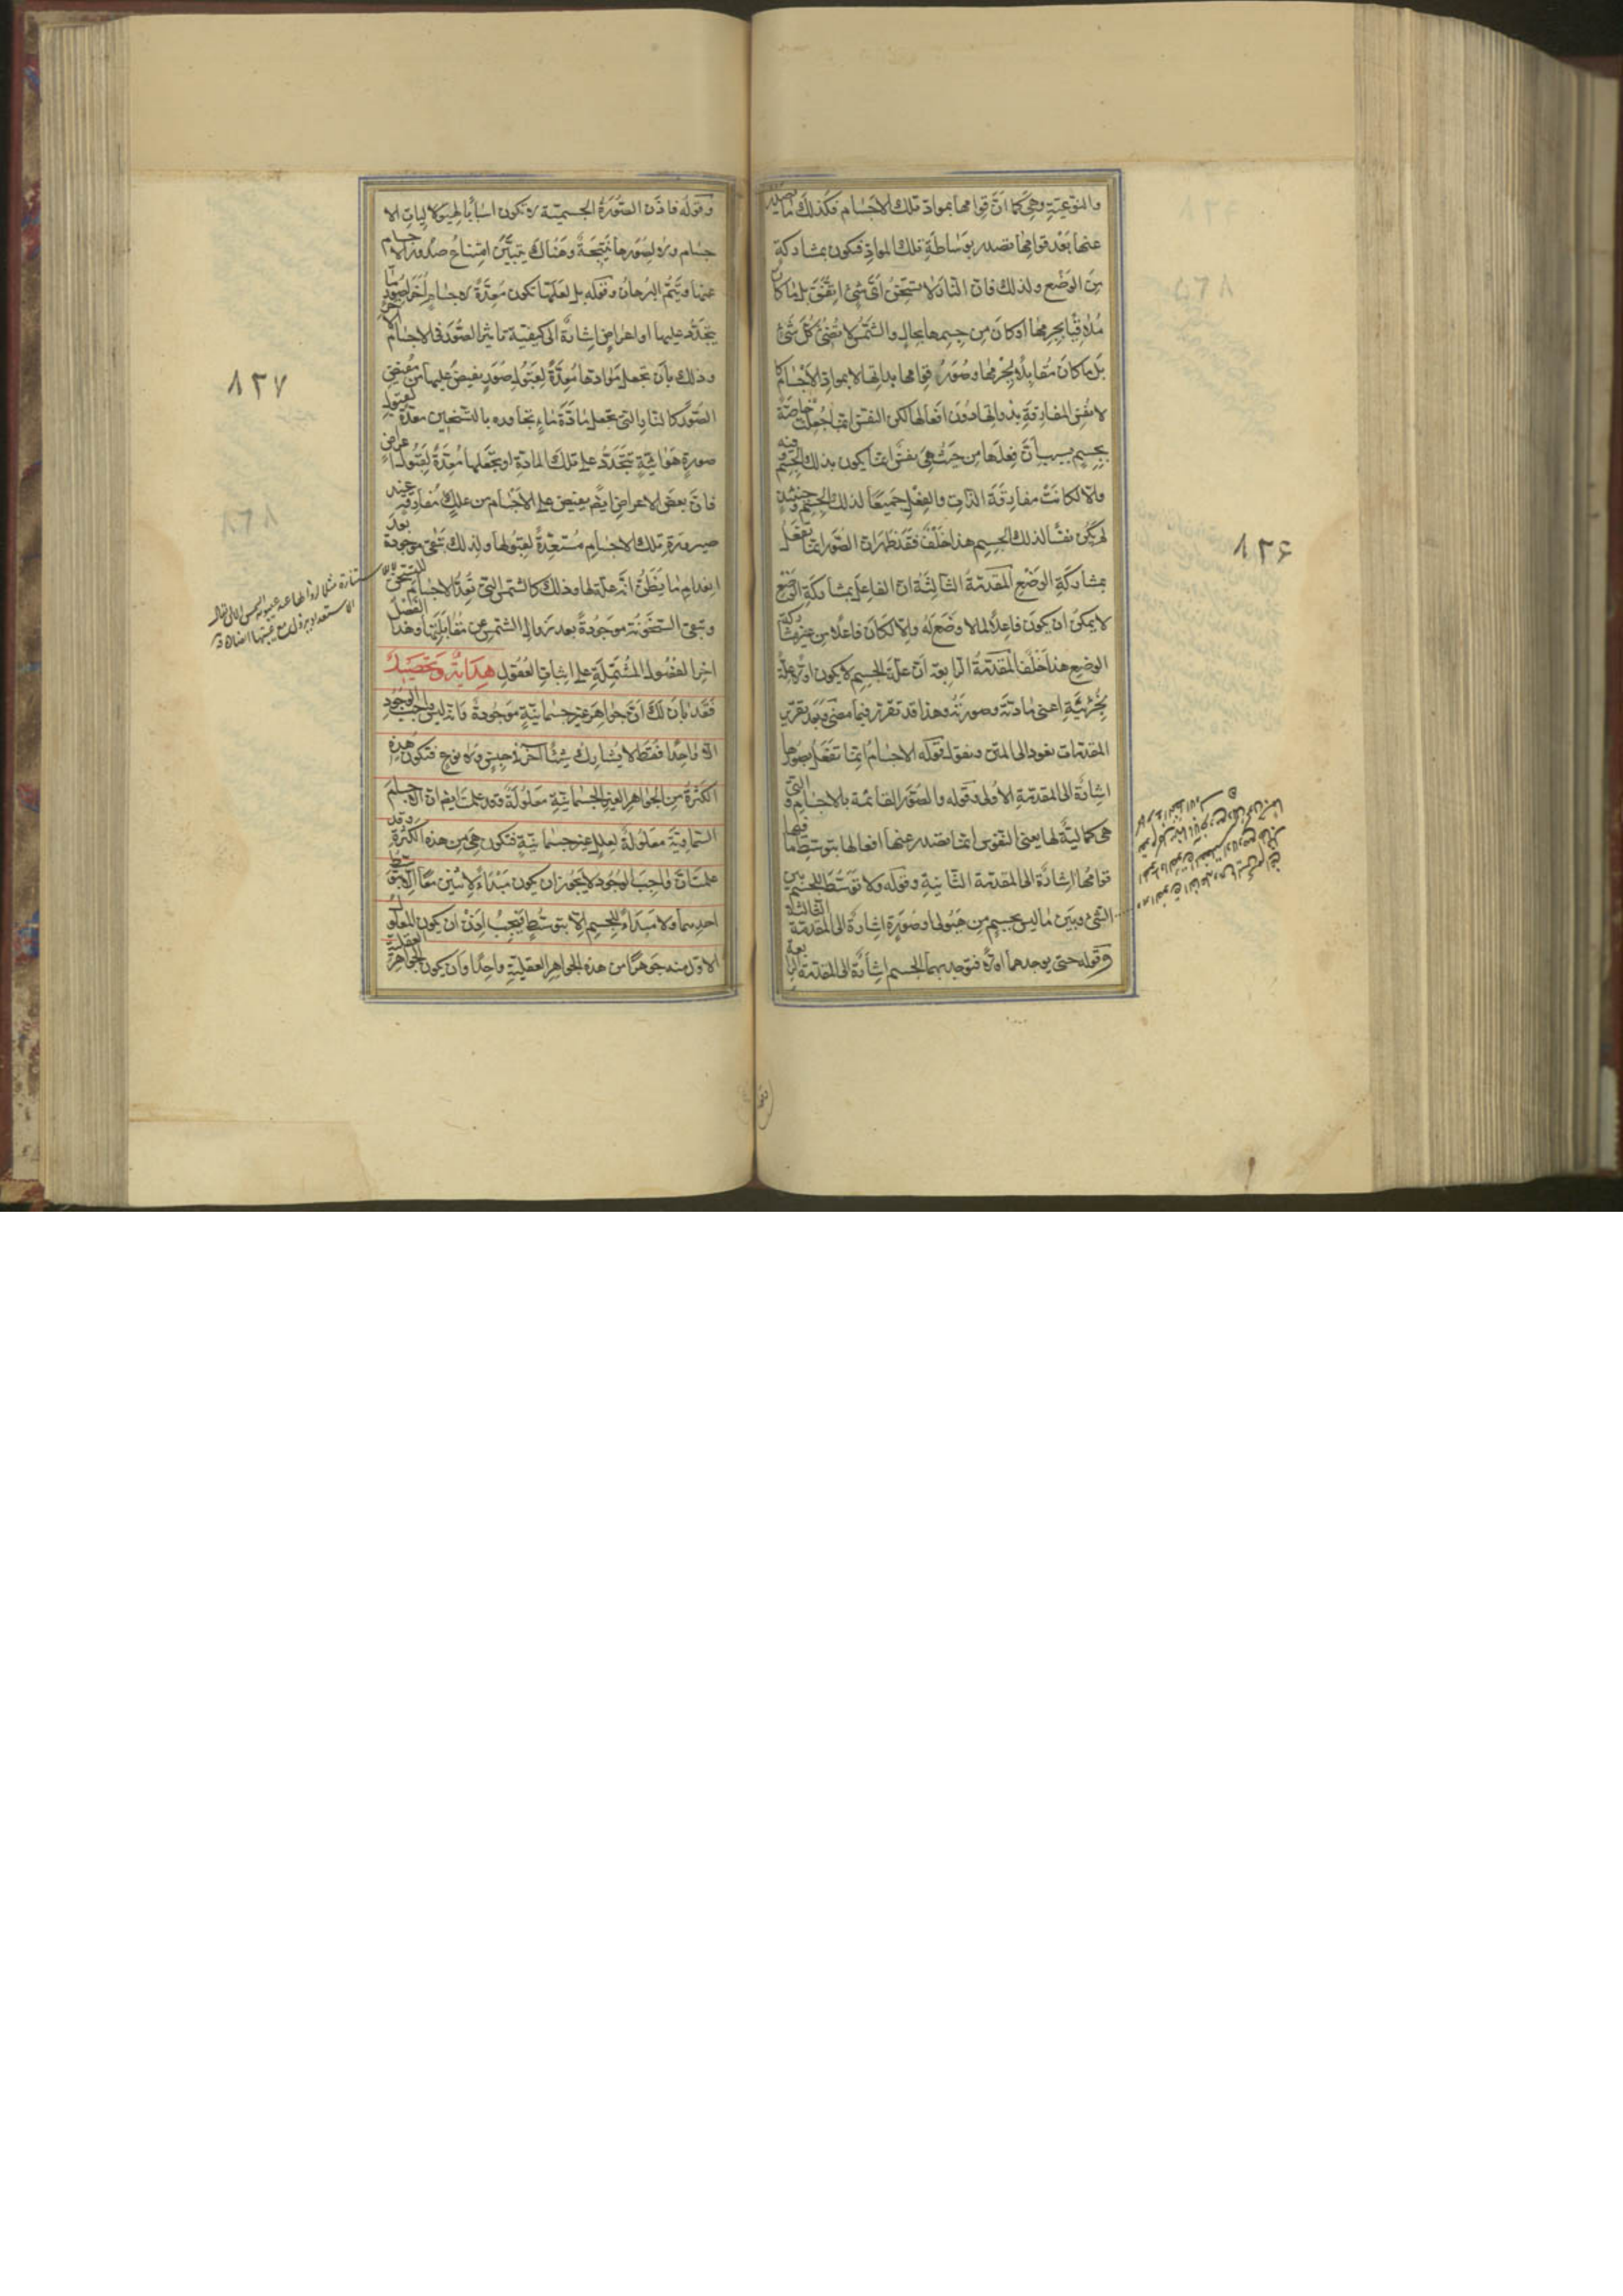 والنوعية وهي كما ان قوامها بمواد تلك الاجسام فكذلك ما يصدر
عنها بعد قوامها تصدر بوساطة تلك المواد فيكون بمشاركة
من الوضع ولذلك فان النار لا تسخن اى شئ اتفق بل ما كان
ملاقيا بجرمها او كان من جسمها بحال والشمس لا تضئ كل شئ
بل ما كان مقابلا لجرمها وصور قوامها بذاتها لا بمواد الاجسام كا
لانفس المفارقة بذواتها دون افعالها لكن النفس انما جعلت خاصة
بجسم بسبب ان فعلها من حيث هي نفس انما يكون بذلك الجسم وفيه
والا لكانت مفارقة الذات والفعل جميعا لذلك الجسم وحينئذ
لم تكن نفسا لذلك الجسم هذا خلف فقد ظهر ان الصور انما تفعل
بمشاركة الوضع المقدمة الثالثة ان الفاعل بمشاركة الوضع
لا يمكن ان يكون فاعلا لما لا وضع له والا لكان فاعلا من غير مشاركة
الوضع هذا خلف المقدمة الرابعة ان علة الجسم لا يكون اولا علة
لجزئيه اعنى مادته وصورته وهذا قد تقرر فيما مضى وبعد تقرير
المقدمات نعود الى المتن ونقول قوله الاجسام انما تفعل بصورها
اشارة الى المقدمة الاولى وقوله والصور القائمة بالاجسام والتي
هي كمالية لها يعنى النفوس انما تصدر عنها افعالها بتوسط ما فيها
قوامها اشارة الى المقدمة الثانية وقوله ولا توسط للجسم بين
الشئ وبين ما ليس بجسم من هيولى او صورة اشارة الى المقدمة الثالثة
وقوله حتى يوجدهما اولا فيوجد بهما الجسم اشارة الى المقدمة الرابعة
٨٢٦
وقوله فاذن الصورة الجسمية لا تكون اسبابا لهيوليات الا
جسام ولا لصورها نتيجة وهناك يتبين امتناع صدور الاجسام
عنها ويتم البرهان وقوله بل لعلها تكون معدة لاجسام اخر لصور ما
يتجدد عليها او اعراض اشارة الى كيفية تاثير الصور في الاجسام الاخر
وذلك بان تجعل موادها معدة لقبول صور يفيض عليها من مفيض
الصور كالنار التي تجعل مادة ماء تجاوره بالتسخين معدة لقبول
صورة هوائية تتجدد على تلك المادة او تجعلها معدة لقبول اعراض
فان بعض الاعراض ايضا يفيض على الاجسام من علل مفارقة عند
صيرورة تلك الاجسام مستعدة لقبولها ولذلك تبقى موجودة بعد
انعدام ما يظن انه علة لها وذلك كالشمس التي تعد الاجسام للتسخن
وتبقى السخونة موجودة بعد زوال الشمس عن مقابلتها وهذا الفصل
اخر الفصول المشتملة على اثبات العقول هداية وتحصيل
فقد بان لك ان جواهر غير جسمانية موجودة وانه ليس واجب الوجود
الا واحدا فقط لا يشارك شيئا آخر في جنس ولا نوع فتكون هذه
الكثرة من الجواهر الغير الجسمانية معلولة وقد علمت ايضا ان الاجسام
السماوية معلولة لعلل غير جسمانية فتكون هي من هذه الكثرة وقد
علمت ان واجب الوجود لا يجوز ان يكون مبدأ لاثنين معا الا بتوسط
احدهما ولا مبدأ للجسم الا بتوسط فيجب اذن ان يكون المعلول
الاول منه جوهرا من هذه الجواهر العقلية واحدا وان يكون الجواهر العقلية
٨٢٧